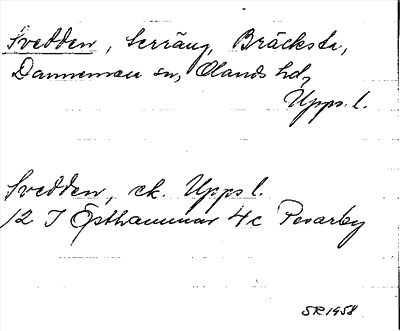 Svedden, terräng, Bräcksta,
Dannemora sn, Olands hd,
Upps. l.
Svedden, ek. Upps l.
12 I Östhammar 4c Pesarby
SR 1958